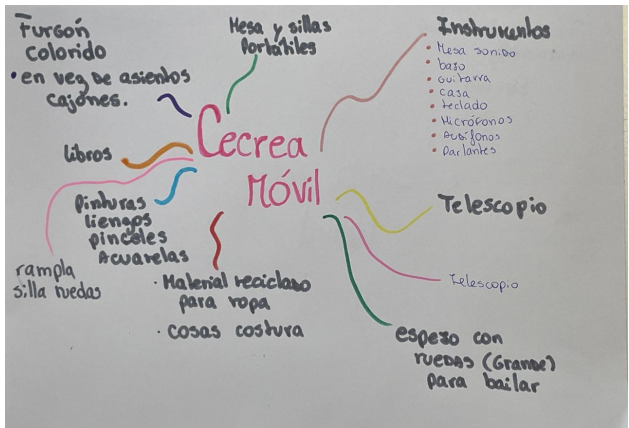 Furgón
colorido
• en vez de asientos
cajones.
Mesa y sillas
Portátiles
Instrumentos
• Mesa sonido
• bajo
• Guitarra
• casa
• teclado
• Micrófonos
• Audífonos
• Parlantes
libros
Cecrea
Móvil
Pinturas
lienzos
pinceles
Acuarelas
Telescopio
rampla
silla ruedas
· Material reciclado
para ropa
· cosas costura
Telescopio
espejo con
ruedas (Grande)
para bailar